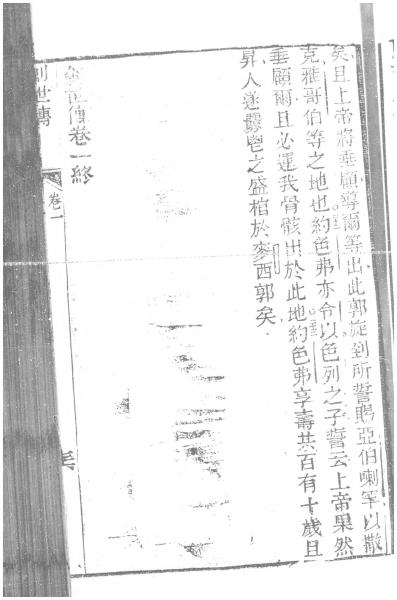 矣且上帝將垂顧導爾等出此郭旋到所誓賜亞伯喇罕以撒
克雅哥伯等之地也約色弗亦令以色列之子誓云上帝果然
垂顧爾且必運我骨骸出於此地約色弗享壽共百有十歲且
昇人遂釁鬯之盛棺於麥西郭矣
創世傳卷一終
創世傳
卷一